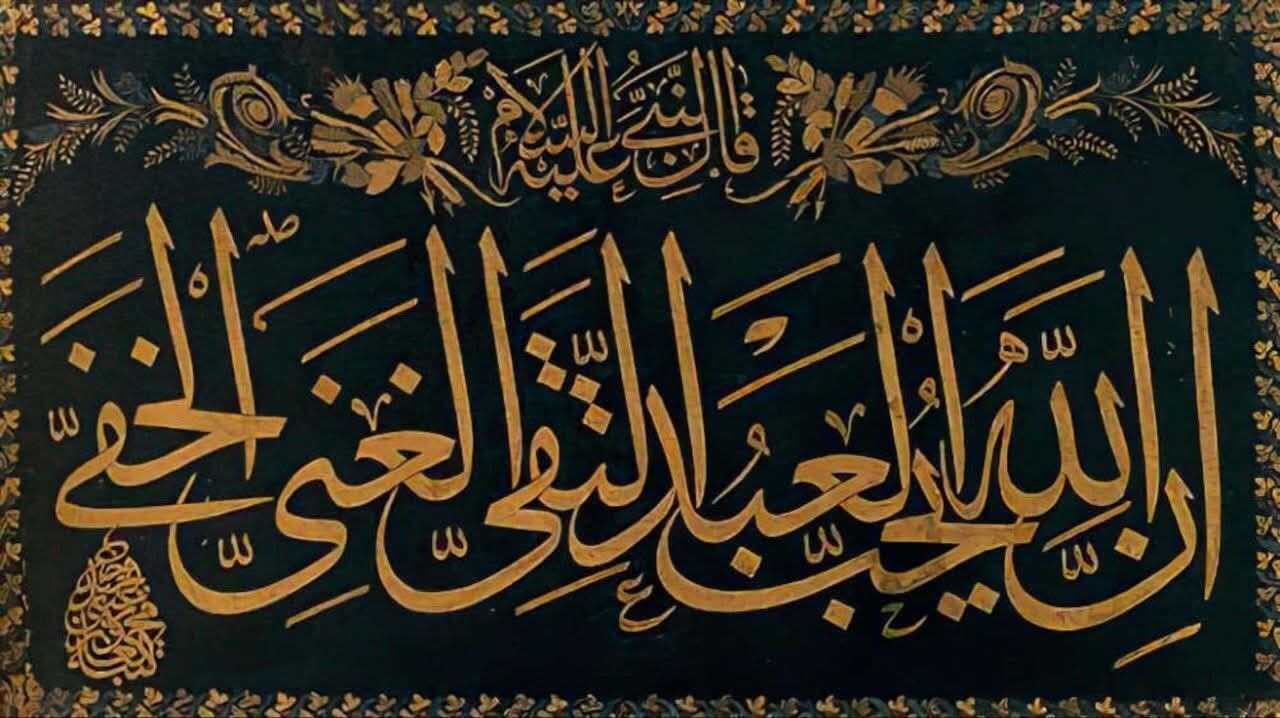 قَالَ النَّبِيُّ عَلَيْهِ السَّلَامُ
اِنَّ اللّٰهَ يُحِبُّ الْعَبْدَ التَّقِيَّ الْغَنِيَّ الْخَفِيَّ